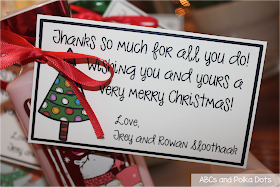 Thanks so much for all you do!
Wishing you and yours a
very merry Christmas!
Love,
Trey and Rowan Sloothaak
ABCs and Polka Dots